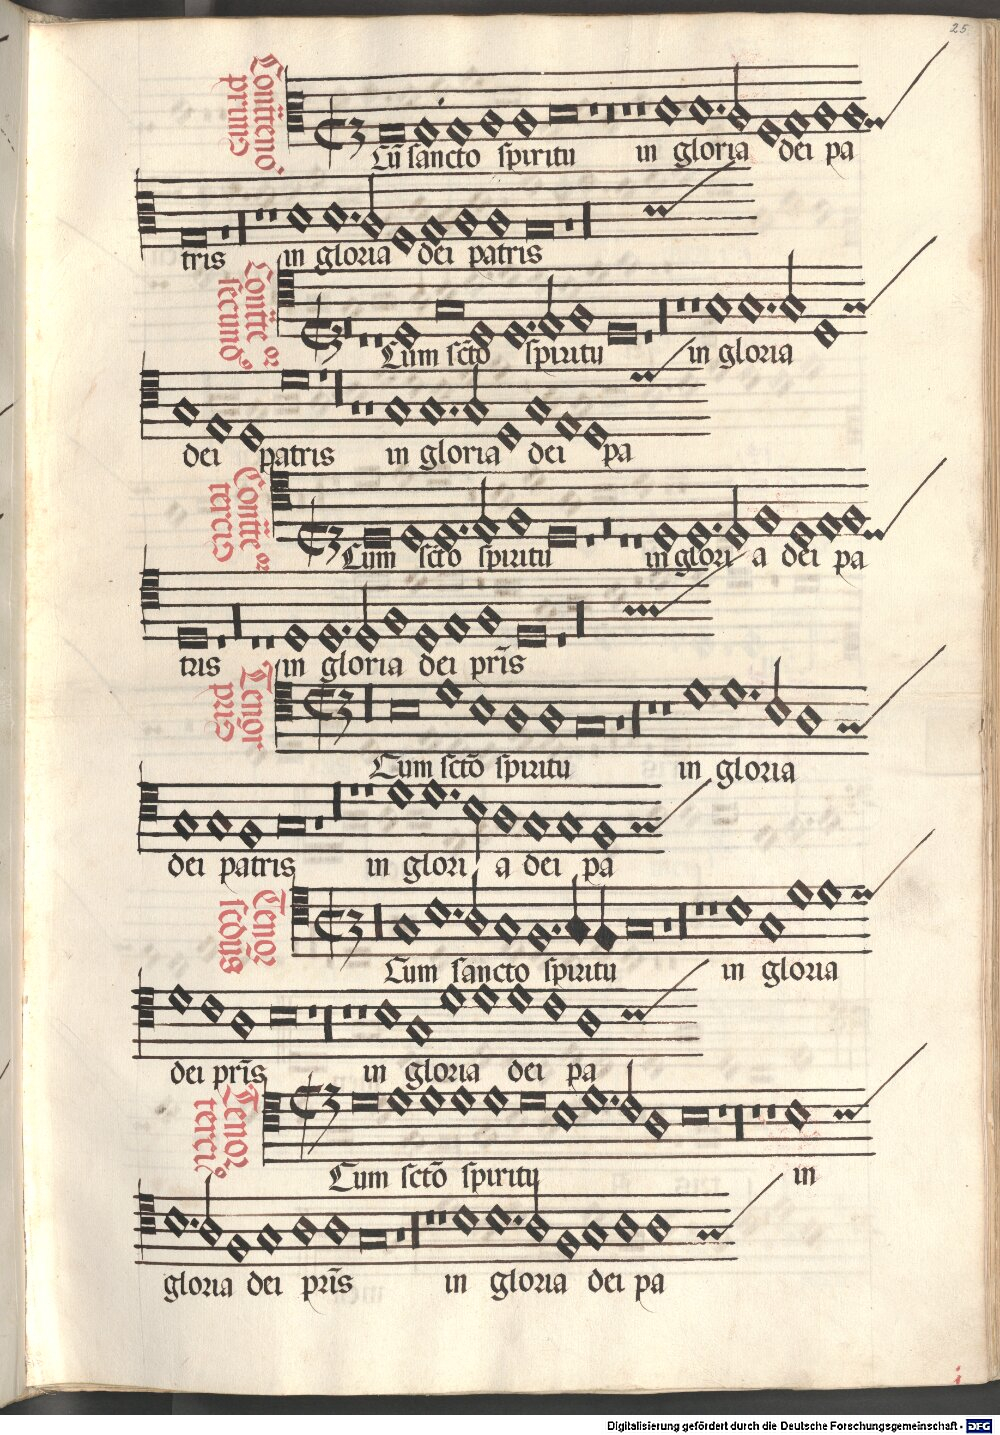 25
Contrateno.
primus
Cū sancto spiritu in gloria dei pa
tris in gloria dei patris
secundꝰ
Cum sct̄o spiritu in gloria
dei patris in gloria dei pa
tercius
Cum sct̄o spiritu in glori a dei pa
tris in gloria dei pr̄is
Tenor
Cum sct̄o spiritu in gloria
dei patris in glori a dei pa
Tenor
scd̄us
Cum sancto spiritu in gloria
dei pr̄is in gloria dei pa
Tenor
terciꝰ
Cum sct̄o spiritu in
gloria dei pr̄is in gloria dei pa
Digitalisierung gefördert durch die Deutsche Forschungsgemeinschaft - DFG